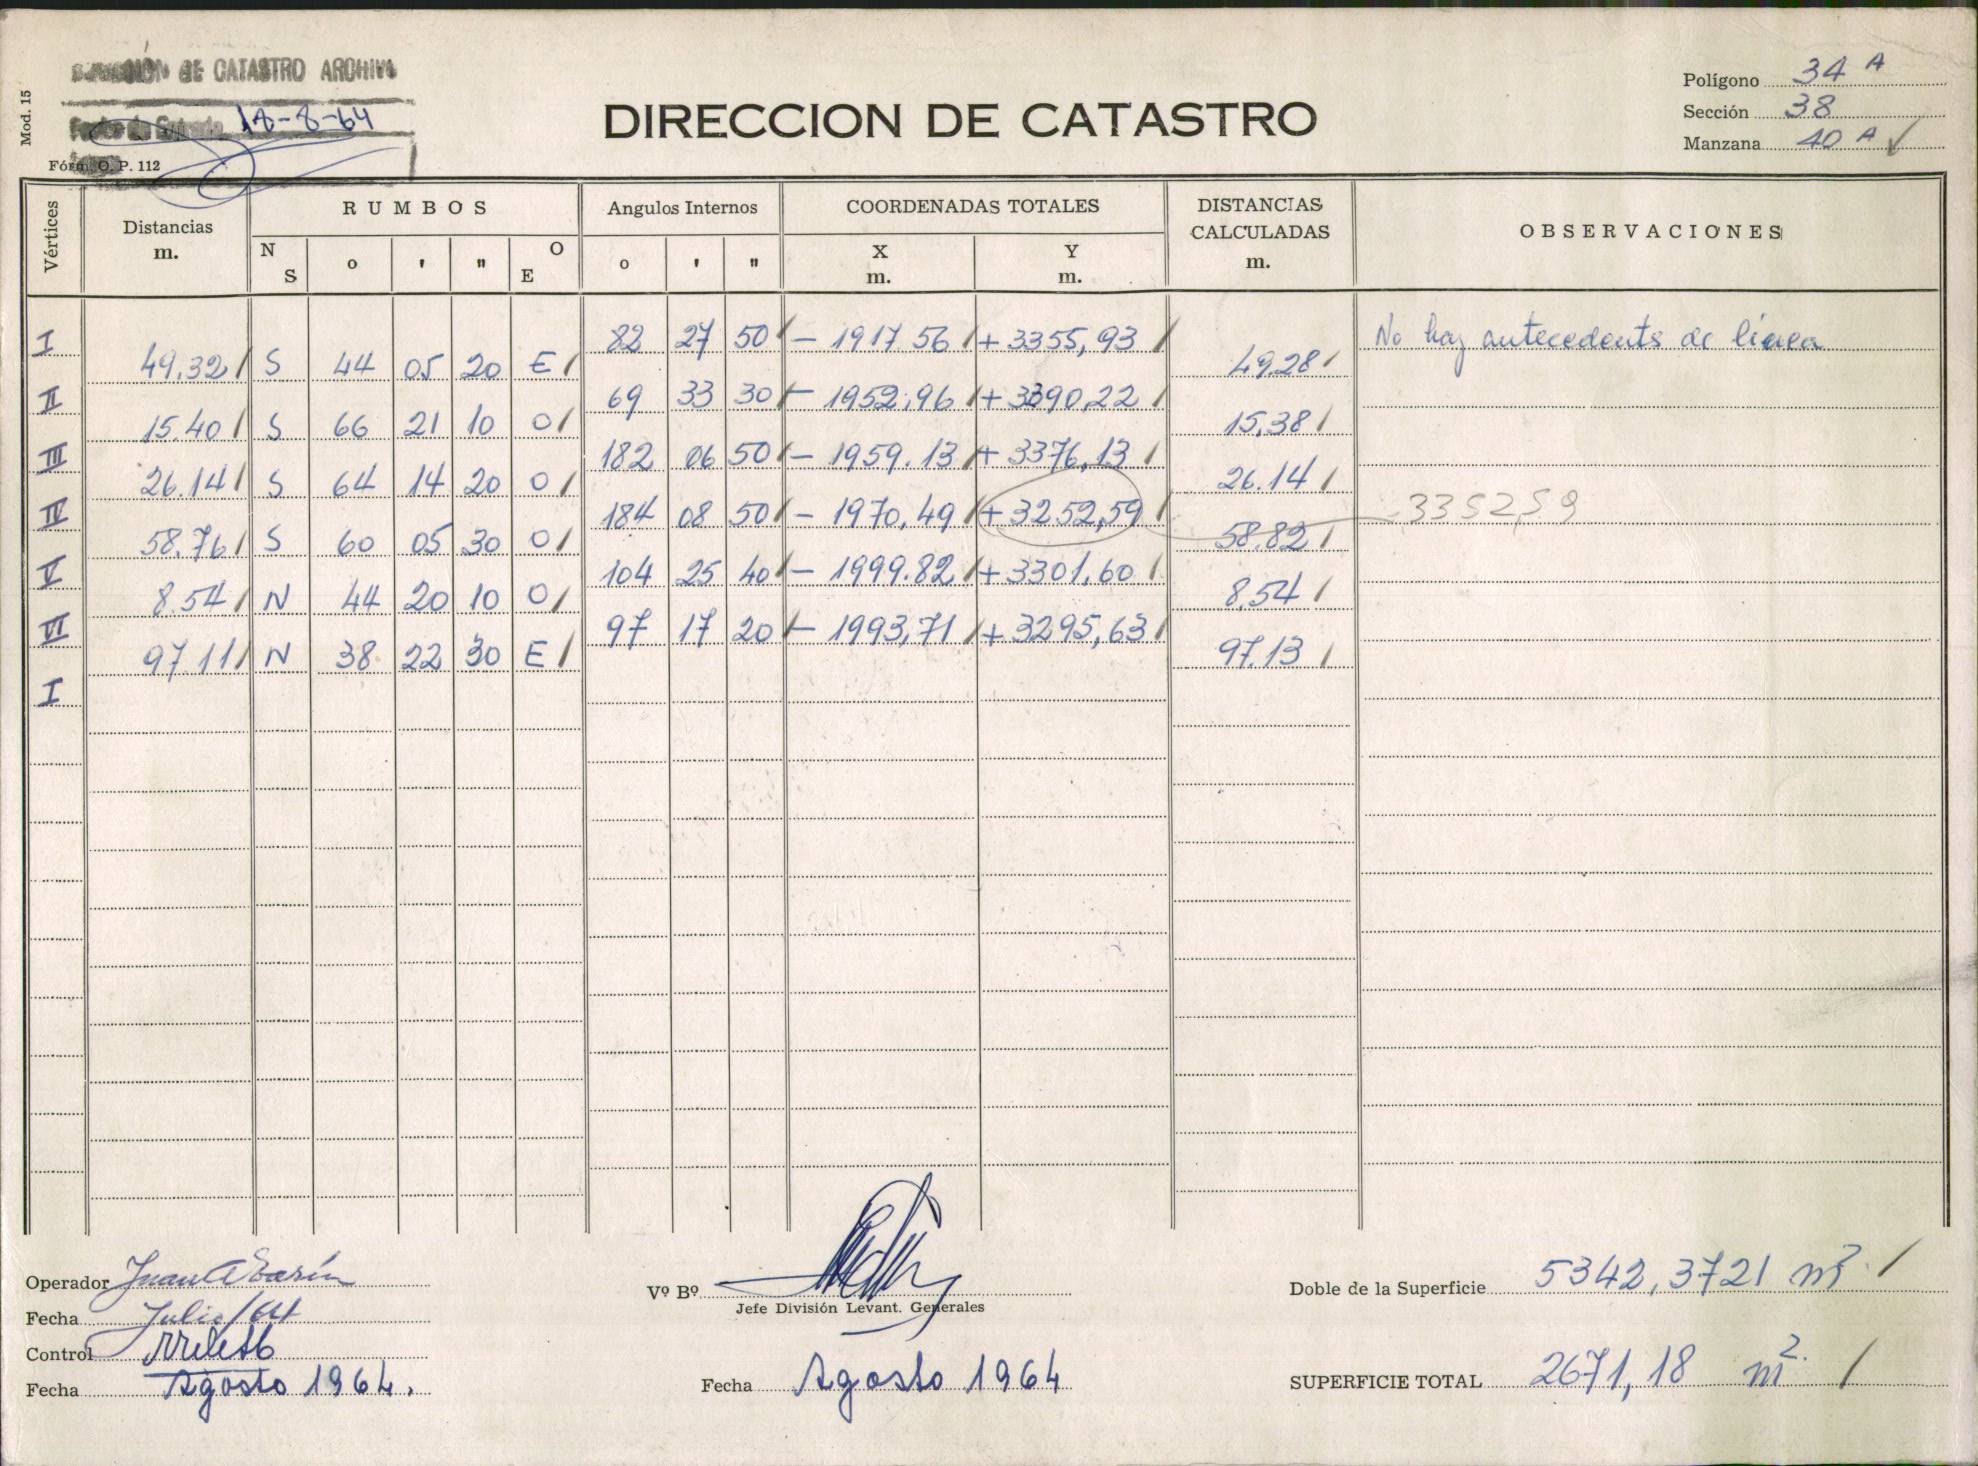 DE CATASTRO ARCHIVO
18-8-64
Mod. 15
Fórm. O. P. 112
DIRECCION DE CATASTRO
Polígono 34 A
Sección 38
Manzana 40 A /
Vértices
Distancias m.
RUMBOS
N S o ' " O E
Angulos Internos
o ' "
COORDENADAS TOTALES
X m. Y m.
DISTANCIAS CALCULADAS m.
OBSERVACIONES
I 82 27 50 / - 1917.56 / + 3355,93 / No hay antecedents de línea
49.32 / S 44 05 20 E / 49.28 /
II 69 33 30 / - 1952.96 / + 3390,22 /
15.40 / S 66 21 10 O / 15,38 /
III 182 06 50 / - 1959.13 / + 3376,13 /
26.14 / S 64 14 20 O / 26.14 /
IV 184 08 50 / - 1970,49 / + 3252,59 / 3352,59
58.76 / S 60 05 30 O / 58.82 /
V 104 25 40 / - 1999.82 / + 3301.60 /
8.54 / N 44 20 10 O / 8,54 /
VI 97 17 20 / - 1993,71 / + 3295,63 /
97.11 / N 38 22 30 E / 97.13 /
I
Operador Juan A
Fecha Julio/64
Control
Fecha Agosto 1964.
Vº Bº
Jefe División Levant. Generales
Fecha Agosto 1964
Doble de la Superficie 5342,3721 m². /
SUPERFICIE TOTAL 2671,18 m². /